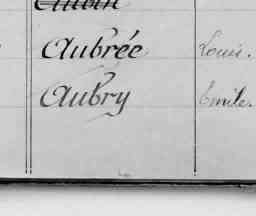 Aubin
Aubrée Louis.
Aubry Emile.